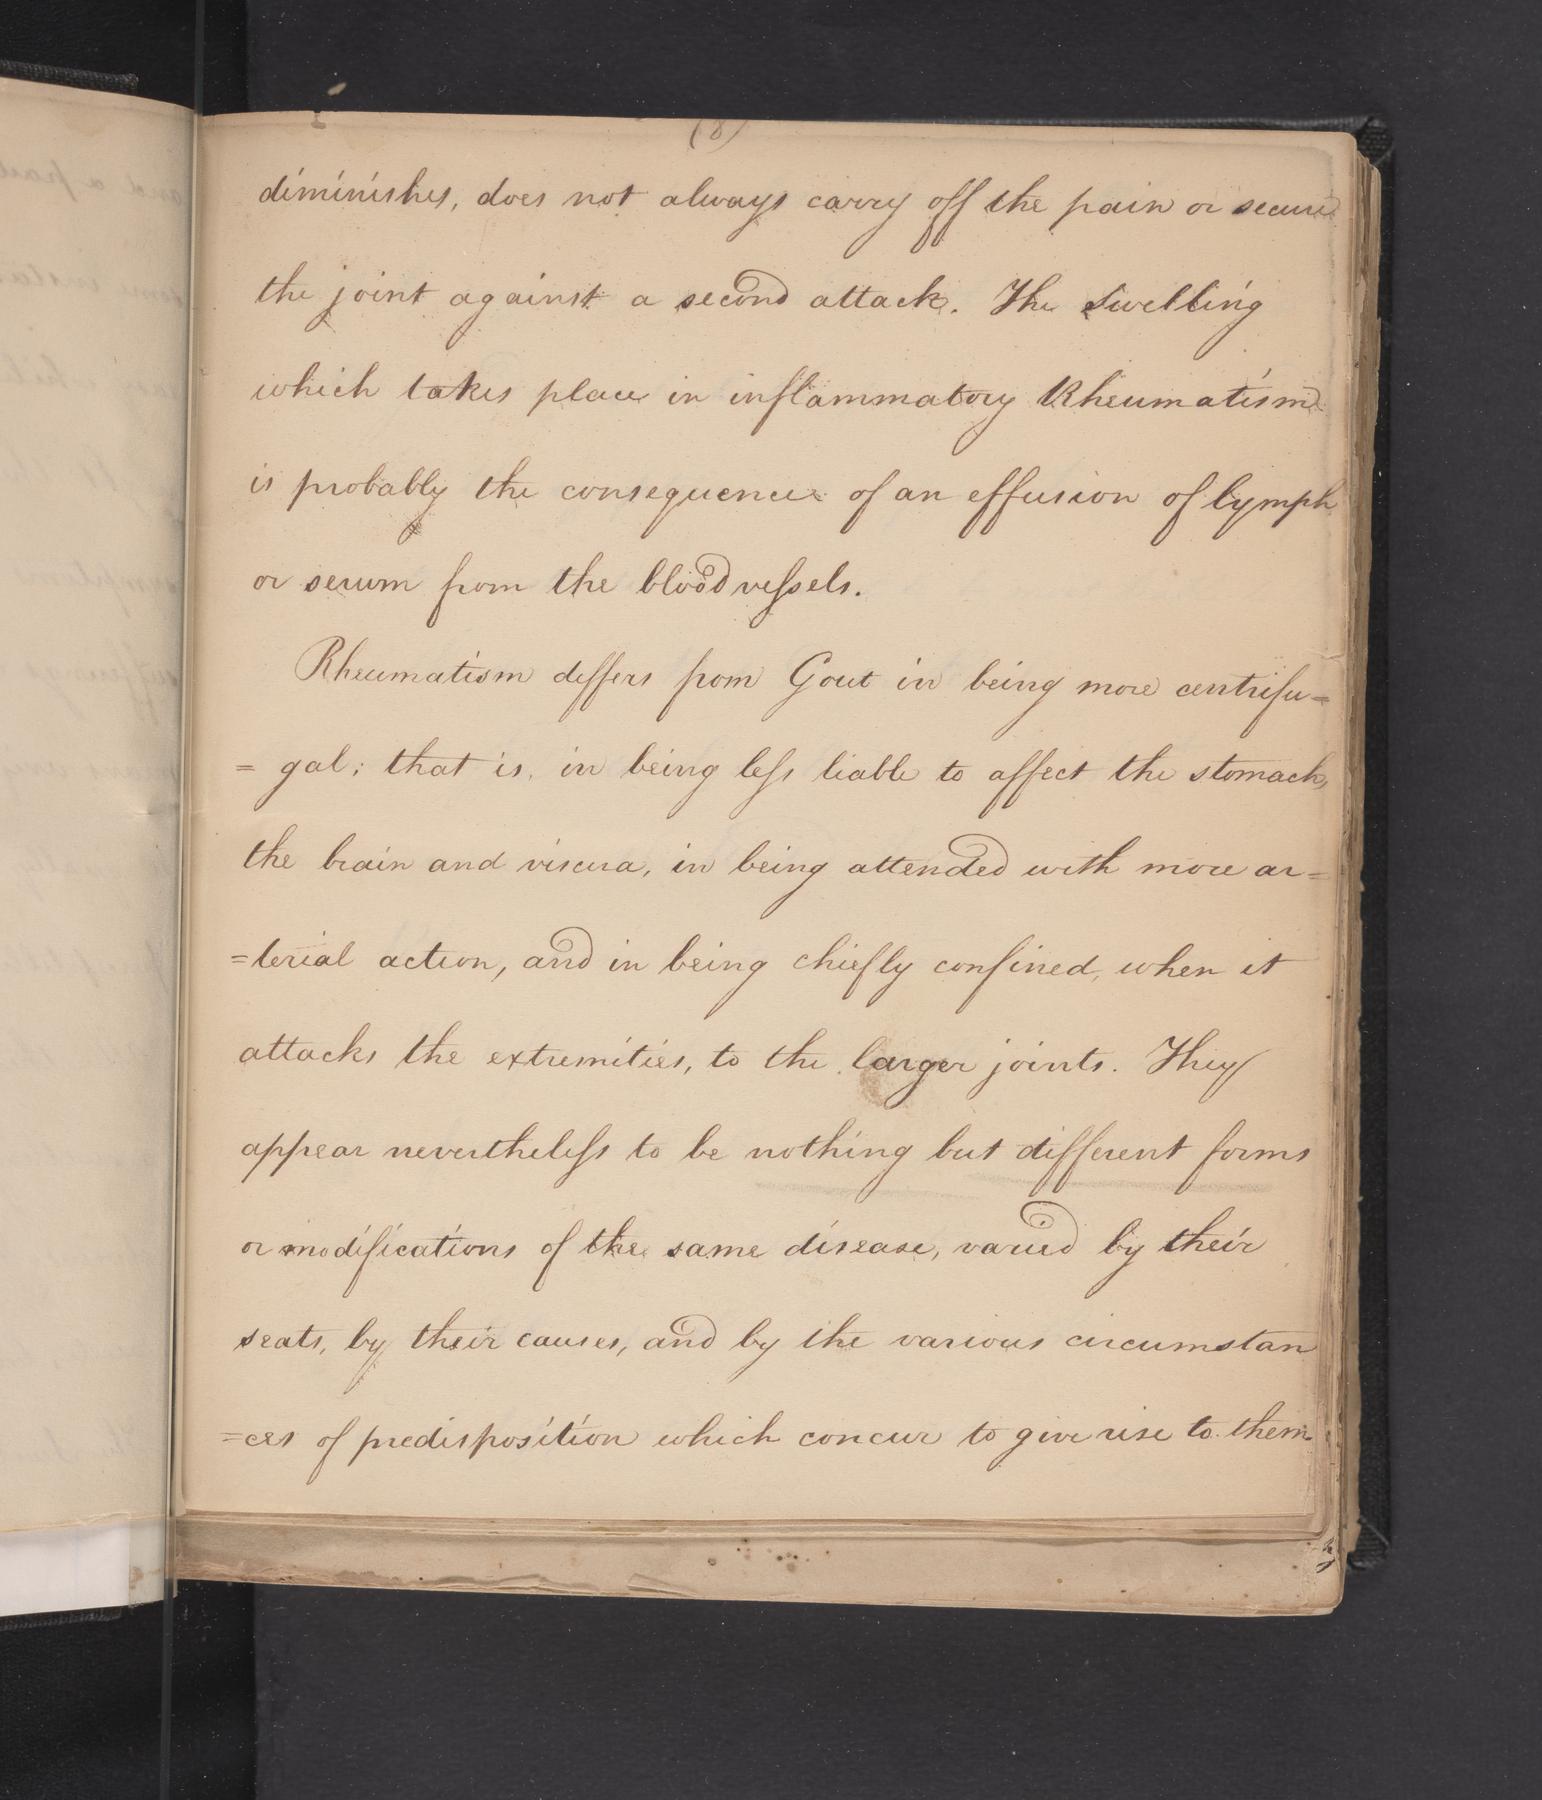 (8)
diminishes, does not always carry off the pain or secure
the joint against a second attack. The Swelling
which takes place in inflammatory Rheumatism
is probably the consequence of an effusion of lymph
or serum from the blood vessels.
Rheumatism differs from Gout in being more centrifu=
= gal; that is, in being less liable to affect the stomach,
the brain and viscera, in being attended with more ar=
=terial action, and in being chiefly confined, when it
attacks the extremities, to the larger joints. They
appear nevertheless to be nothing but different forms
or modifications of the same disease, varied by their
seats, by their causes, and by the various circumstan
=ces of predisposition which concur to give rise to them